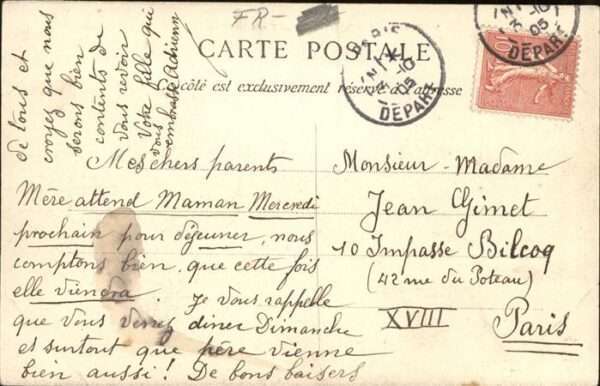 FR-
CARTE POSTALE
Ce côté est exclusivement réservé à l'adresse
PARIS
13-10
05
DEPART
13-10
05
DEPART
10
Mes chers parents
Mère attend Maman Mercredi
prochain pour déjeuner, nous
comptons bien que cette fois
elle viendra. Je vous rappelle
que vous venez diner Dimanche
et surtout que père vienne
bien aussi! De bons baisers
de tous et
croyez que nous
serons bien
contents de
vous revoir
Votre fille qui
vous
embrasse
Monsieur-Madame
Jean Gimet
10 Impasse Bilcoq
(42 rue du Poteau)
XVIII
Paris